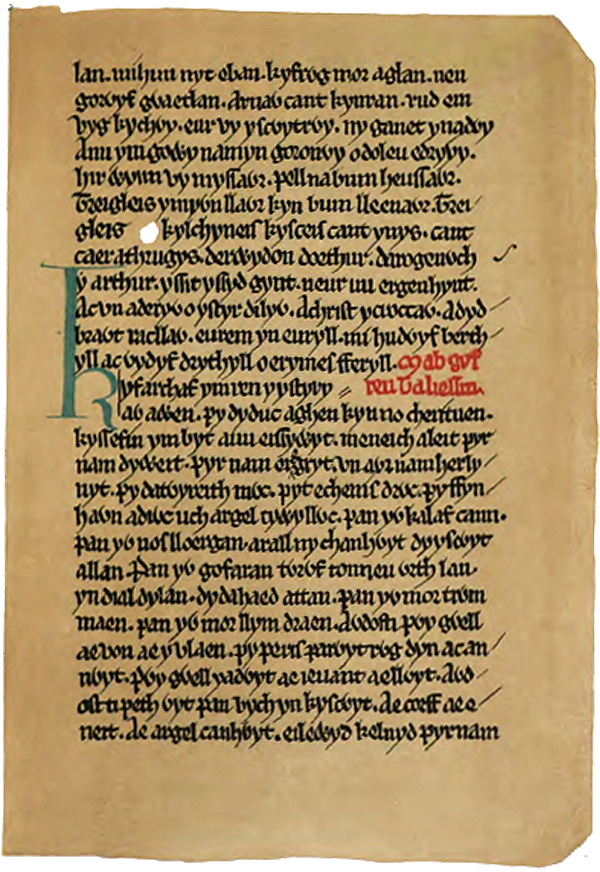 lan. mi hun nyt eban. kyfrỽg mor aglan. neu
goruyf gỽaetlan. Arnaỽ cant kynran. rud em
vyg kychỽy. eur vy yscỽytrỽy. ny ganet ynadỽy
Auu ym gowy namyn goronỽy o doleu edryỽy.
hir ỽynn vy myssaỽr. pell na bum heussaỽr.
Treigleis y myỽn llaỽr kyn bum lleenaỽr. Trei
gleis kylchyneis kysceis cant ynys. cant
caer athrugys. derỽydon doethur. darogenỽch
y arthur. yssit yssyd gynt. neur mi ergenhynt.
Ac vn aderyỽ o ystyr dilyỽ. Achrist ycroccaỽ. A dyd
braỽt racllaỽ. eurem yn euryll. mi hudỽyf berth
yll ac ỽydyf drythyll o erymes fferyll. Mab gyf
Kyfarchaf ym ren y ystyry reu Taliessin.
aỽ aỽen. py dyduc aghen kyn no cherituen.
kyssefin ym byt auu eissyỽyt. meneich aleit pyr
nam dyweit. pyr nam eisgyt. vn aỽr nam herly
nyt. py datỽyreith mỽc. pyt echenis drỽc. py ffyn
haỽn adiỽc uch argel tyỽyllỽc. pan yỽ kalaf cann.
pan yỽ nos lloergan. arall ny chanhỽyt dy yscỽyt
allan. Pan yỽ gofaran tỽrỽf tonneu ỽrth lan.
yn dial dylan. dydahaed attan. pan yỽ mor trỽm
maen. pan yỽ mor llym draen. Aỽdosti pỽy gỽell
ae von ae y vlaen. py peris parỽyt rỽg dyn ac an
nỽyt. pỽy gỽell y adỽyt ae ieuanc aellỽyt. Aỽd
ost ti peth ỽyt pan vych yn kyscỽyt. Ae corff ae e
neit. Ae argel canhỽyt. eilewyd keluyd pyr nam